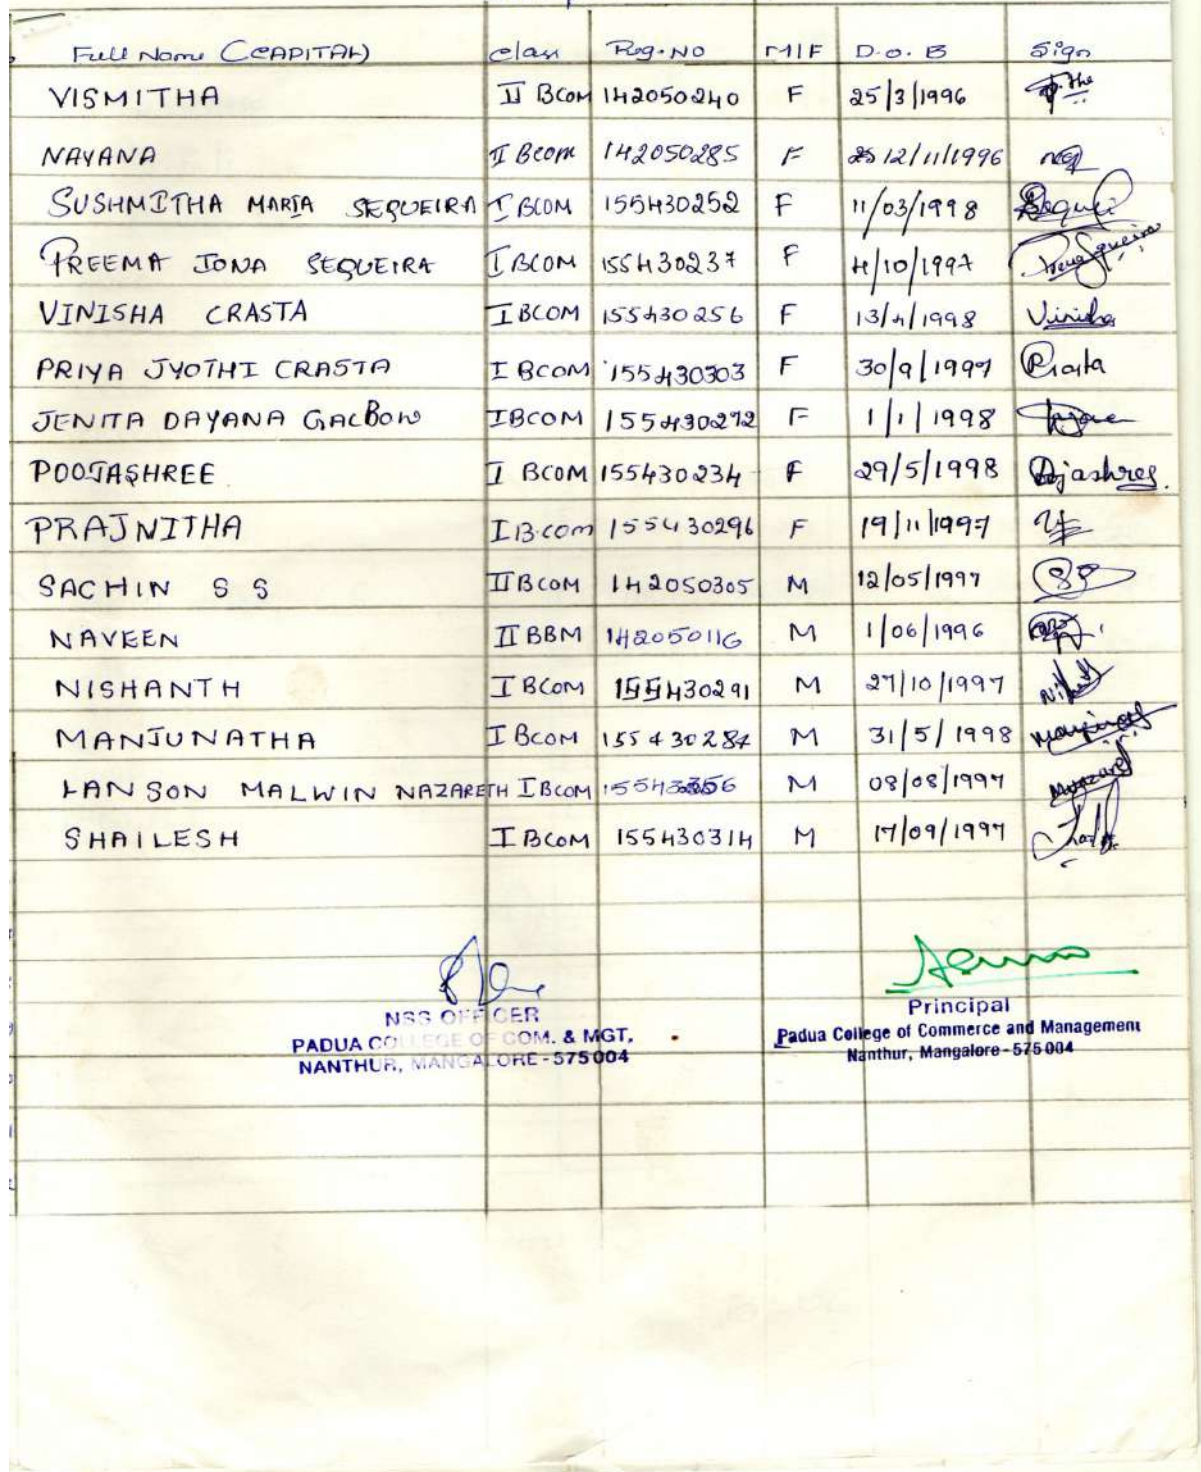 Full Name (CAPITAL) Class Reg. No M/F D.O.B Sign
VISMITHA II BCOM 142050240 F 25/3/1996
NAYANA II Bcom 142050285 F 12/11/1996
SUSHMITHA MARIA SEQUEIRA I BCOM 155430252 F 11/03/1998
PREEMA JONA SEQUEIRA I BCOM 155430237 F 4/10/1997
VINISHA CRASTA I BCOM 155430256 F 13/4/1998 Vinisha
PRIYA JYOTHI CRASTA I BCOM 155430303 F 30/9/1997
JENITA DAYANA GALBOW I BCOM 155430272 F 1/1/1998
POOJASHREE I BCOM 155430234 F 29/5/1998
PRAJNITHA I B.com 155430296 F 19/11/1997
SACHIN S S II BCOM 142050305 M 12/05/1997
NAVEEN II BBM 142050116 M 1/06/1996
NISHANTH I BCOM 155430291 M 27/10/1997
MANJUNATHA I BCOM 155430284 M 31/5/1998
LANSON MALWIN NAZARETH I BCOM M 08/08/1997
SHAILESH I BCOM 155430314 M 17/09/1997
NSS OFFICER
PADUA COLLEGE OF COM. & MGT,
NANTHUR, MANGALORE - 575004
Principal
Padua College of Commerce and Management
Nanthur, Mangalore - 575 004